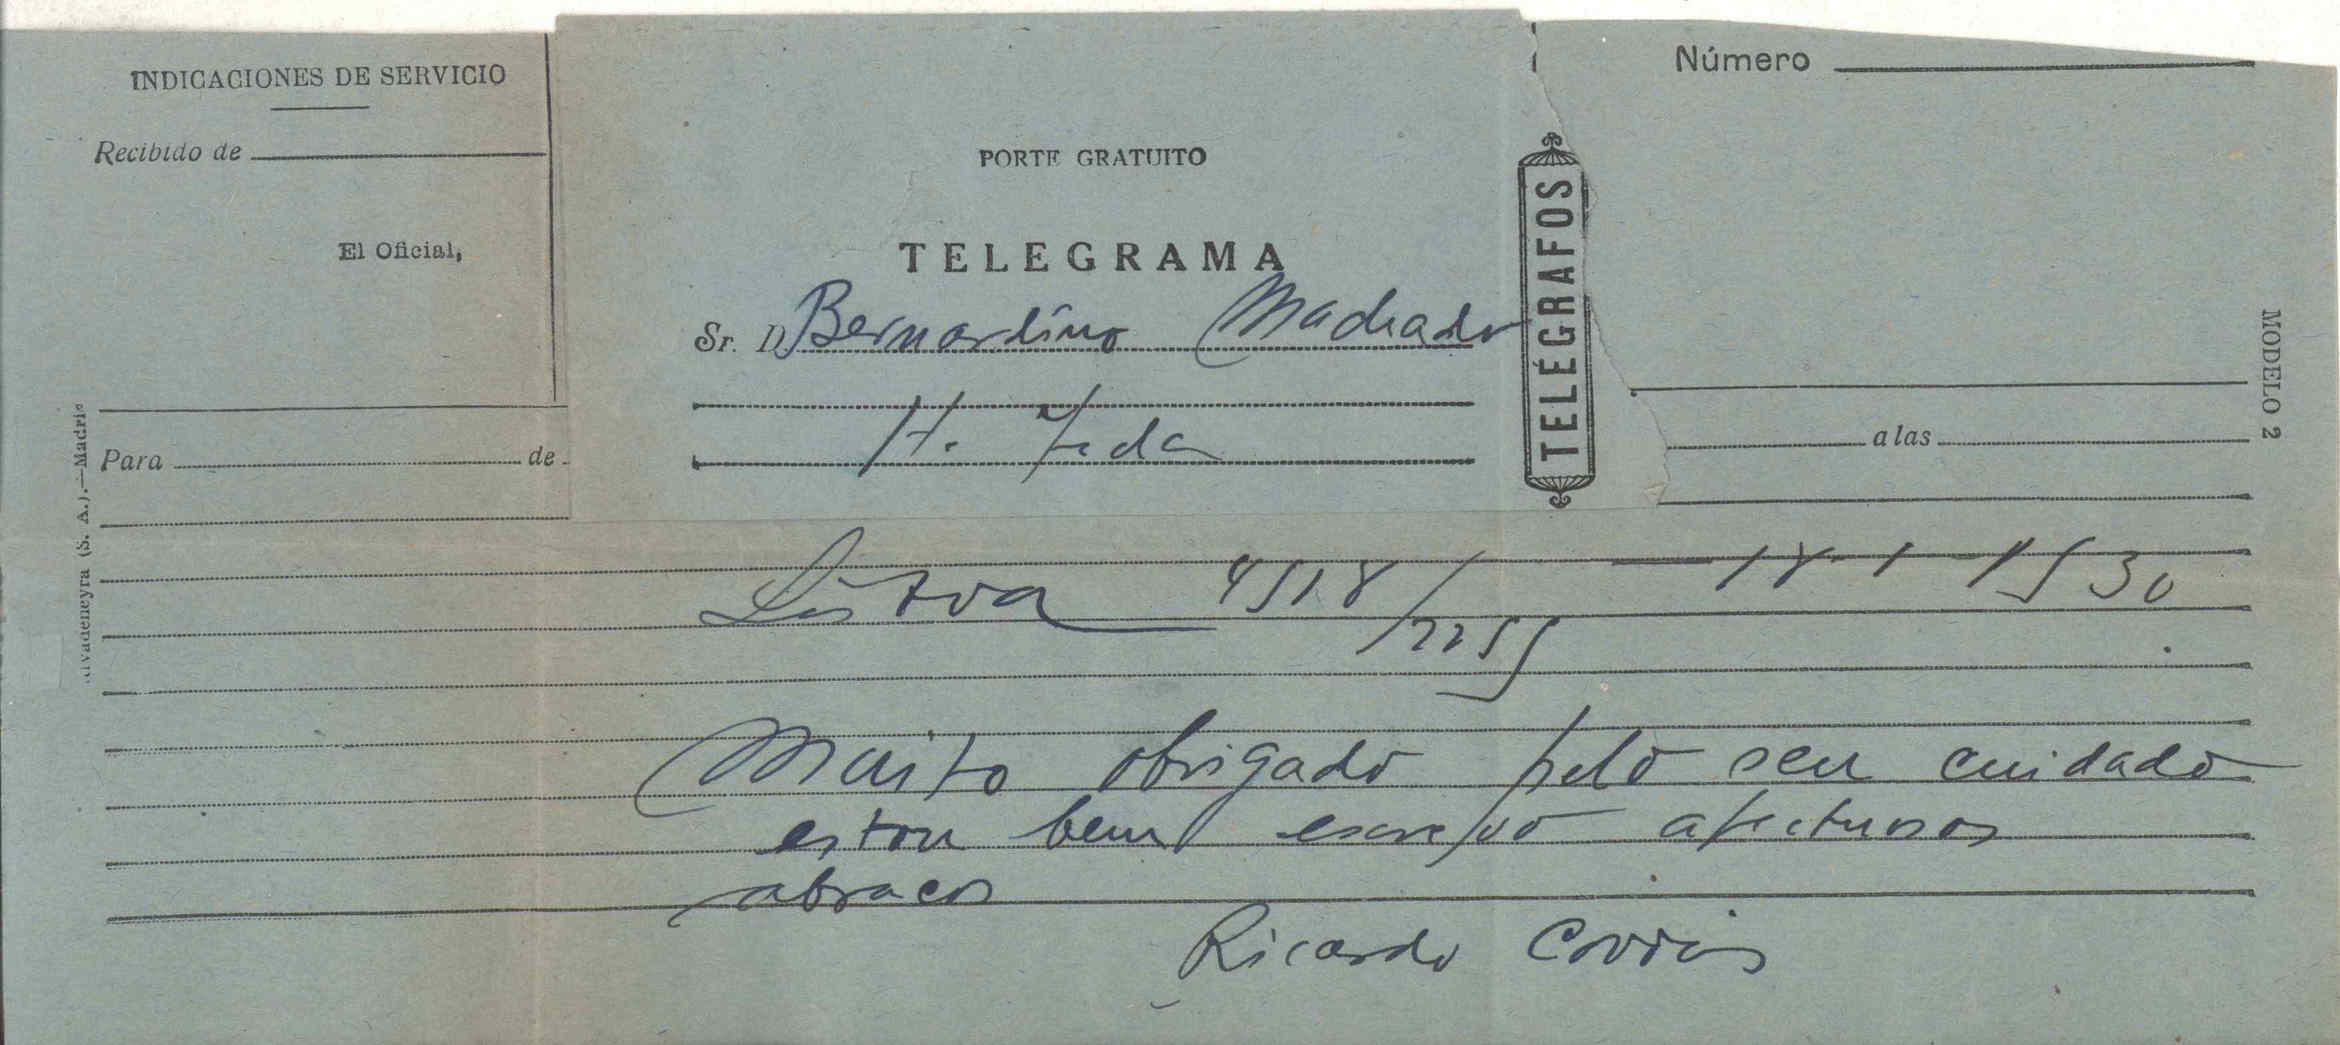 INDICACIONES DE SERVICIO
Recibido de
El Oficial,
Para de
PORTE GRATUITO
TELEGRAMA
Sr. D. Bernardino Machado
TELÉGRAFOS
Número
a las
MODELO 2
ivadeneyra (S. A.).—Madri
Lisboa 4518/ — 18-1-1930
Muito obrigado pelo seu cuidado
estou bem escrevo afectuosos
abraços
Ricardo